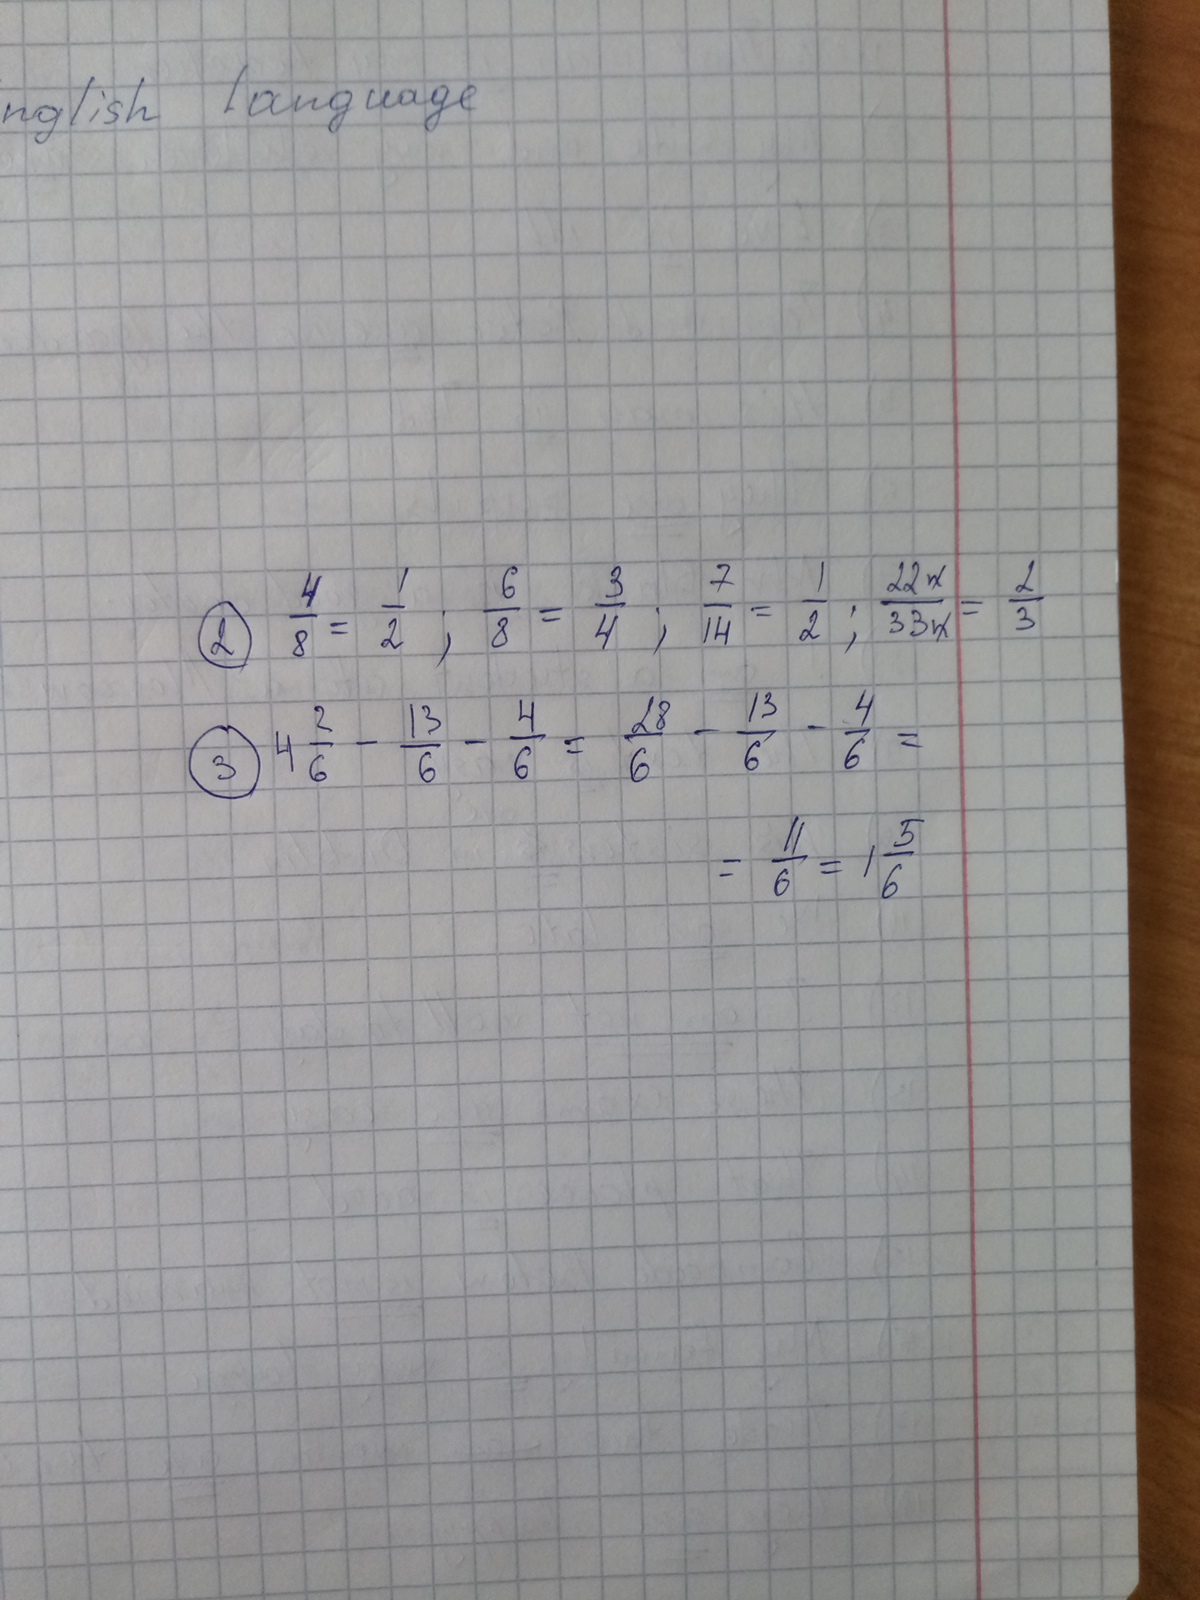 English language
② 4/8 = 1/2 ; 6/8 = 3/4 ; 7/14 = 1/2 ; 22x/33x = 2/3
③ 4 2/6 - 13/6 - 4/6 = 28/6 - 13/6 - 4/6 =
= 11/6 = 1 5/6